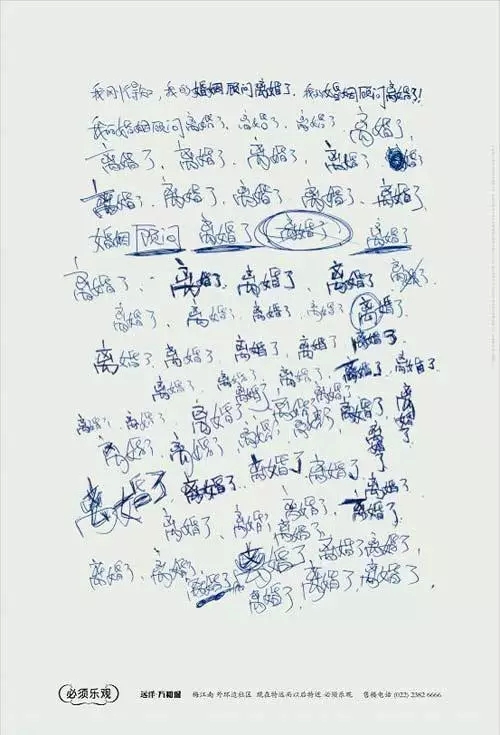 我的婚姻顾问离婚了.我的婚姻顾问离婚了!
我的婚姻顾问离婚了、离婚了、离婚了、离婚了、
离婚了、离婚了、离婚了、离婚了、婚
离婚了、离婚了、离婚了、离婚了、离婚了、
婚姻顾问 离婚了 离婚了 离婚了
离婚了、离婚了、离婚了、离婚了、离婚了
离婚了、离婚了、离婚了、离婚了 离婚了
离婚了、离婚了、离婚了、离婚了、离婚了
离婚了、离婚了、离婚了、离婚了、离婚了
离婚了、离婚了、离婚了、离婚了、离婚了、离婚了
离婚了、离婚了、离婚了、离婚了、离婚了
离婚了 离婚了 离婚了 离婚了 离婚了
离婚了、离婚了、离婚了、离婚了
离婚了、离婚了、离婚了、离婚了、离婚了
离婚了、离婚了、离婚了、离婚了
必须乐观 远洋·万和城 梅江南 外环边社区 现在特远而以后特近 必须乐观 售楼电话 (022) 2382 6666